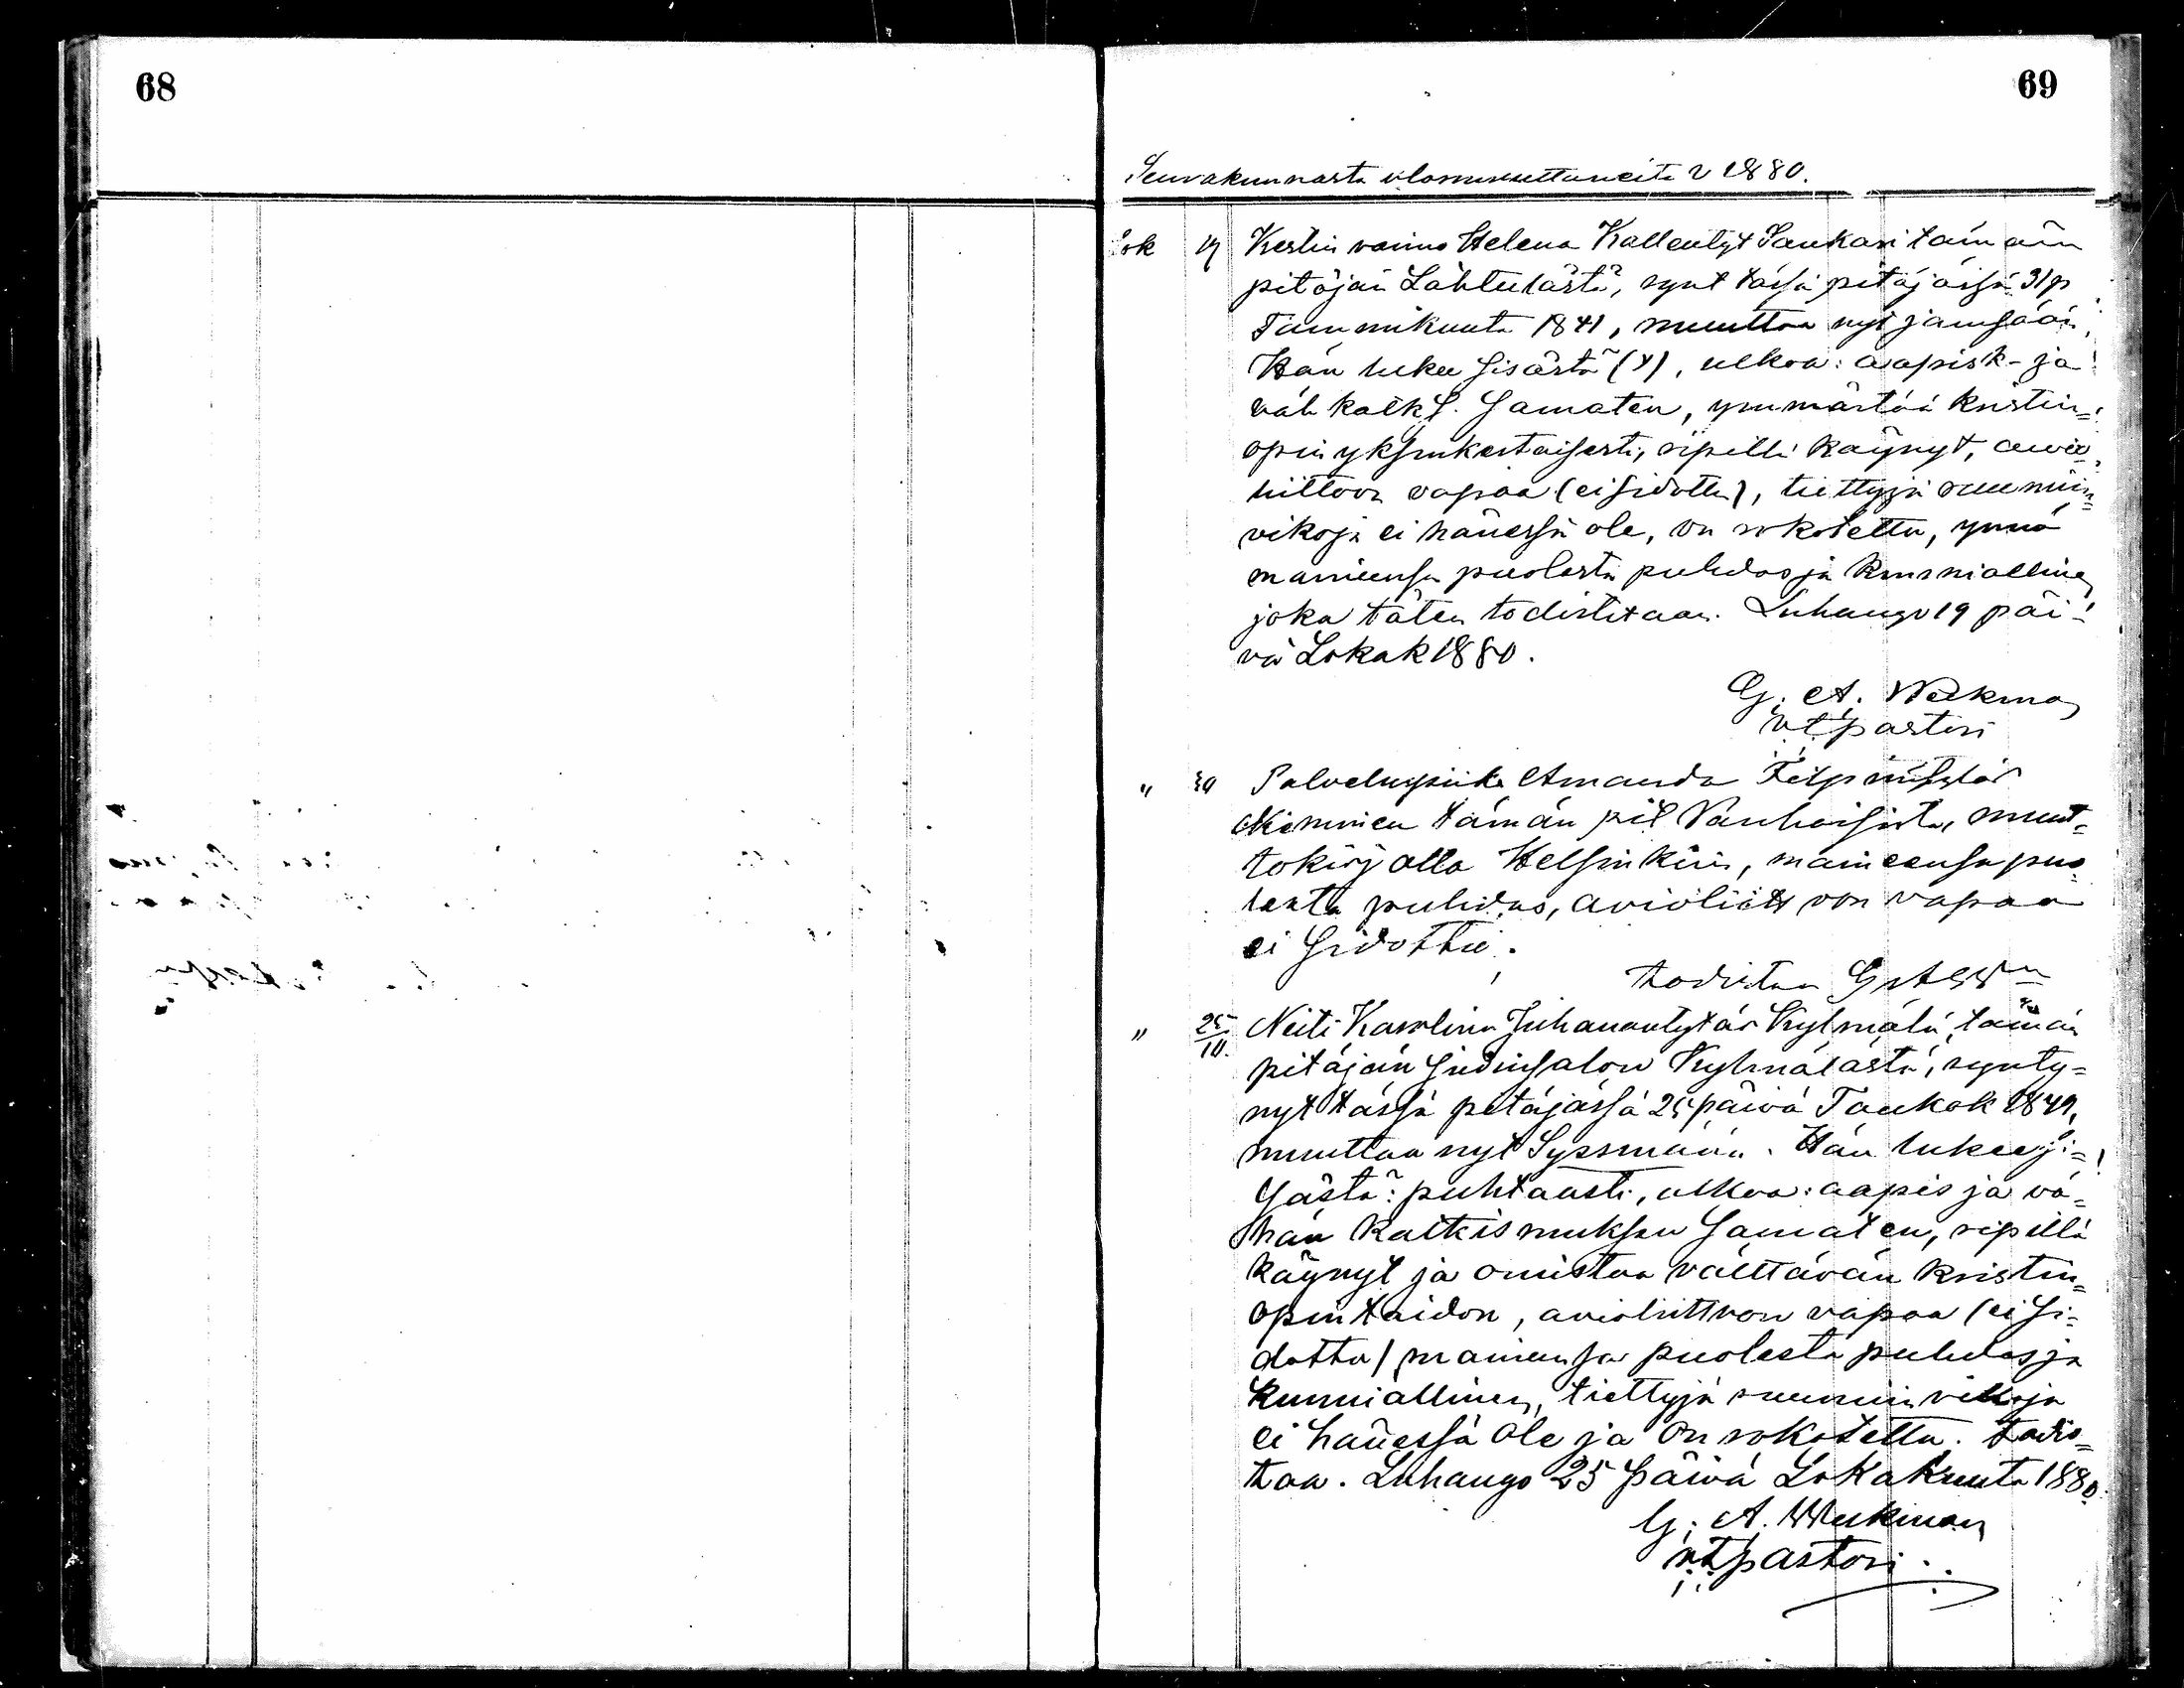 68
69
Seurakunnasta ulosmuuttaneita v 1880.
Lok 19 Kestin vaimo Helena Kallentyt Saukari tämän
pitäjän Lähtelästä, synt tässä pitäjässä 31 p
Tammikuuta 1841, muuttaa nyt Jämsään,
Hän lukee sisästä (y), ulkoa: aapisk- ja
väh katk s. Samaten, ymmärtää kristin=
opin yksinkertaisesti, ripillä käynyt, avio
liittoon vapaa (ei sidottu), tiettyjä ruumiin=
vikoja ei hänessä ole, on rokotettu, ynnä
maineensa puolesta puhdas ja kunniallinen
joka täten todistetaan. Luhango 19 päi=
vä Lokak 1880.
G. A. Wekman
vt pastori
" Palveluspiika Amanda Filpuntytär
Kimmien tämän pit Vanhoisista, muut=
tokirj alla Helsinkiin, maineensa puo
lesta puhdas, avioliittoon vapaa
ei sidottu.
todistaa G A W
" 25/10. Neiti Karolina Juhanantytär Kylmälä, tämän
pitäjän Judinsalon Kylmälästä, synty=
nyt tässä pitäjässä 25 päivä Toukok 1849,
muuttaa nyt Sysmään. Hän lukee si=
sästä: puhtaasti, ulkoa: aapis ja vä=
hän katkismuksen Samaten, ripillä
käynyt ja omistaa välttävän kristin=
opin taidon, avioliittoon vapaa (ei si=
dottu) maineensa puolesta puhdas ja
kunniallinen, tiettyjä ruumiin vikoja
ei hänessä ole ja on rokotettu. todis=
taa. Luhango 25 päivä Lokakuuta 1880.
G. A. Wekman
vt pastori.